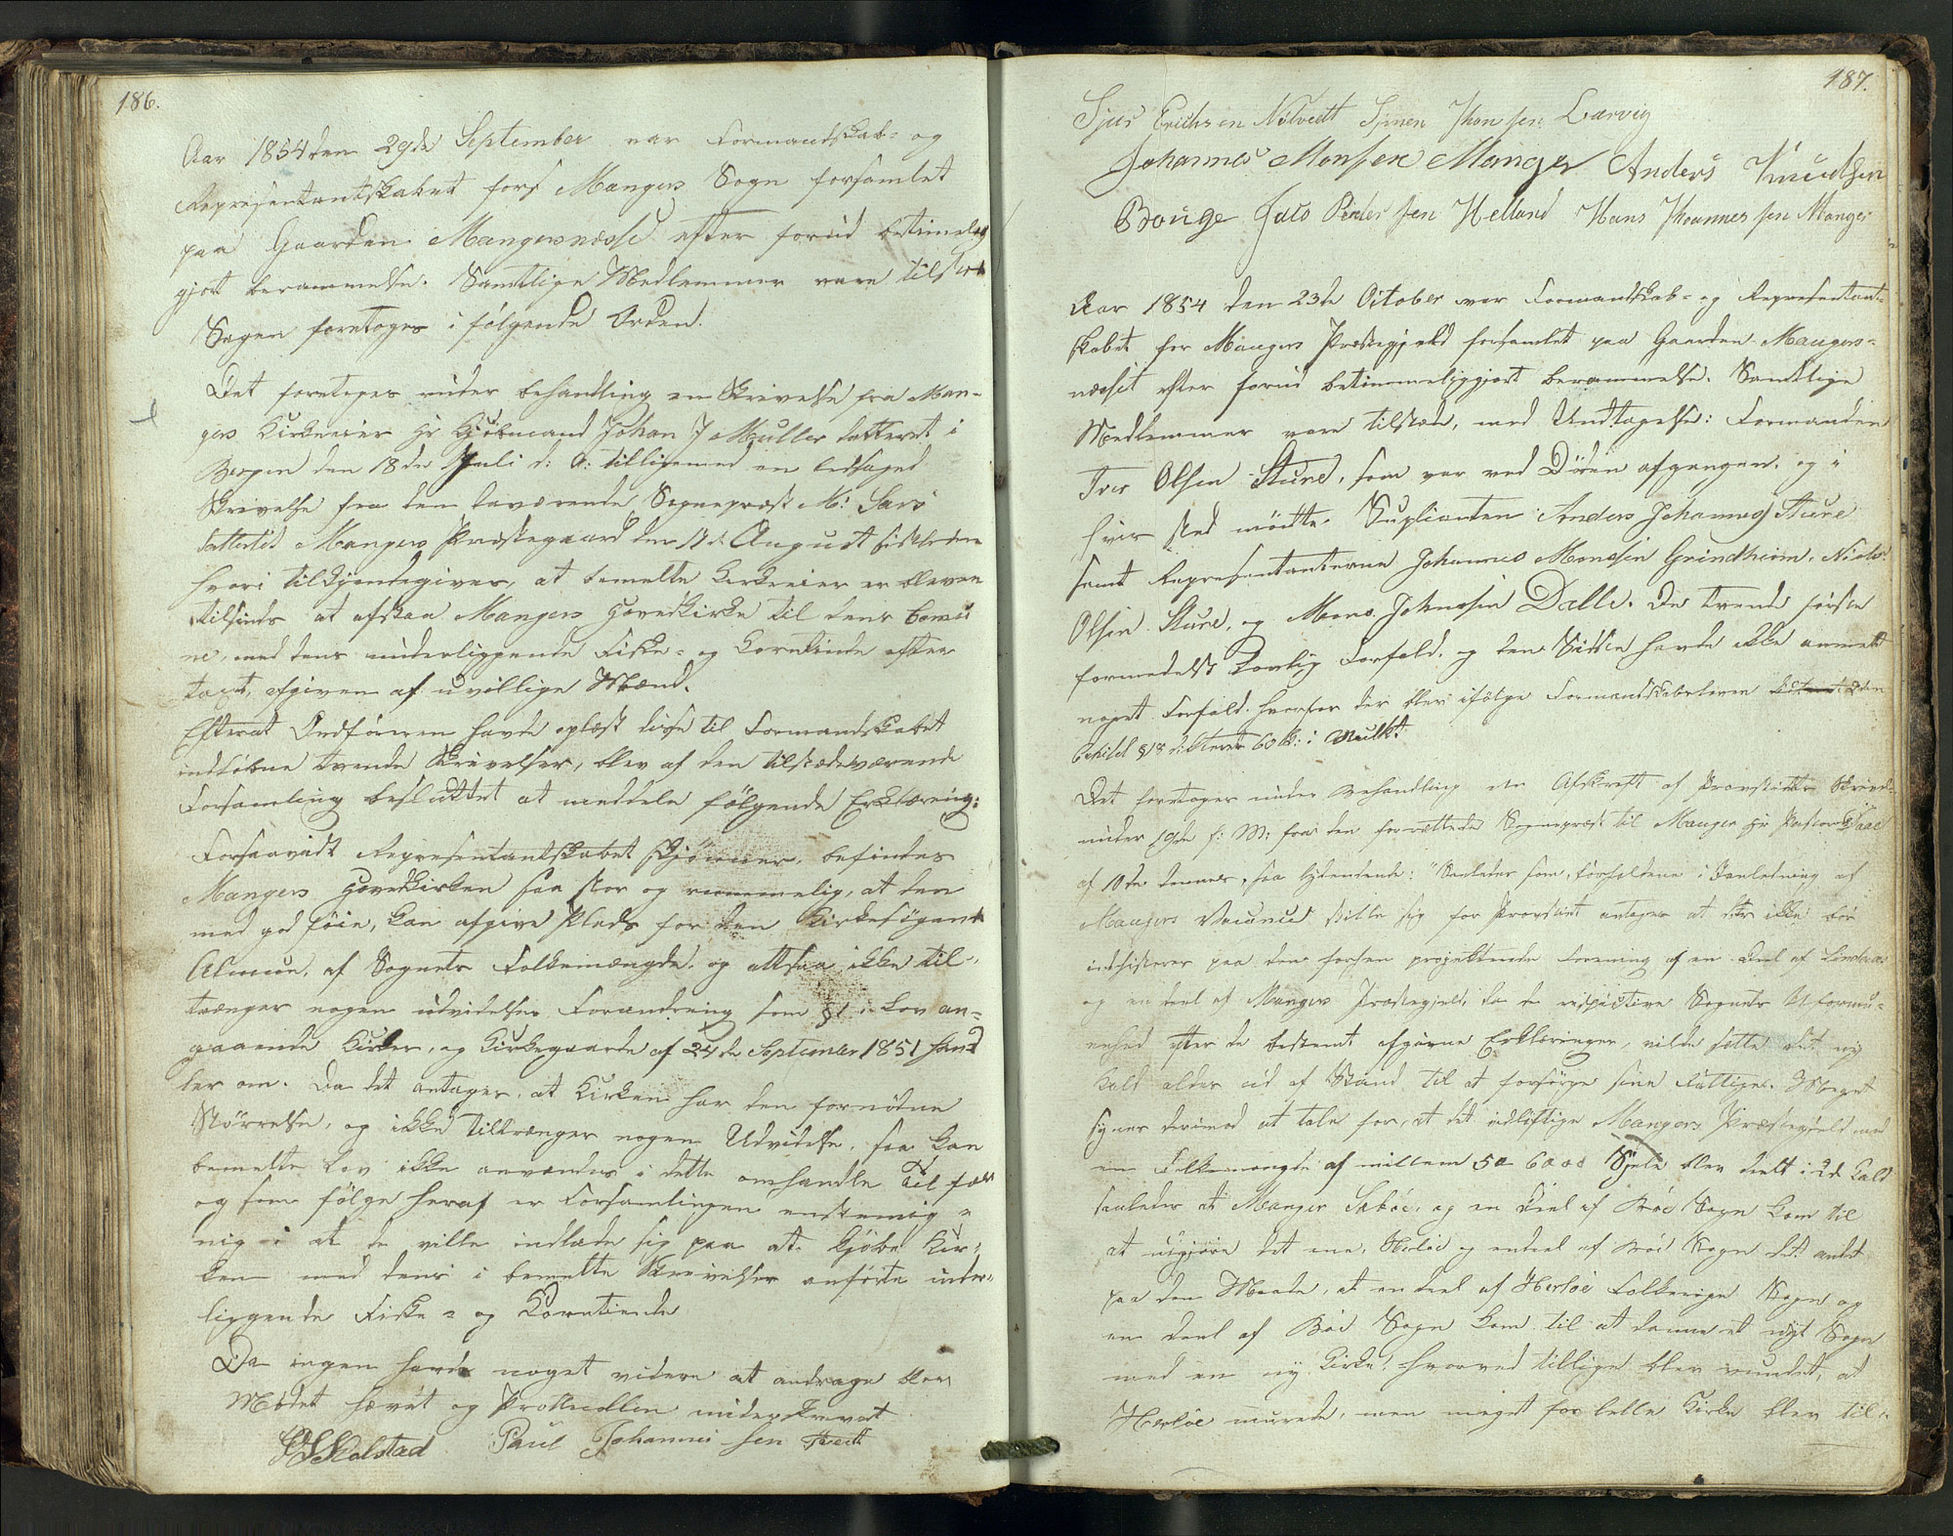 186.
Aar 1854 den 29de September var Formandskab- og
Representantskabet fors Mangers Sogn forsamlet
paa Gaarden Mangersnæsse efter forud betimelig
gjort berammelse. Samtlige Medlemmer vare tilsted
Sagen foretoges i følgende Orden.
Det foretoges under behandling en Skrivelse fra Man-
gers Kirkeeier Hr Kjøbmand Johan J Muller datteret i
Bergen den 18de Juli d: A: tilligemed en ledsaged
Skrivelse fra den daværende Sognepræst M: Sars
datteret Mangers Præstegaard den August sidstleden
hvori tilkjendegives, at bemelte Kirkeeier er bleven
tilsinds at afstaa Mangers Hovedkirke til dens Comu
ne, med dens underliggende Fiske- og Kornetiende efter
taxt, afgiven af uvillige Mænd.
Efterat Ordføreren havde oplæst disse til Formandskabet
indløbne tvende Skrivelser, blev af den tilstedeværende
Forsamling besluttet at meddele følgende Erklæring:
Forsaavidt Representantskabet skjønner, befindes
Mangers Hovedkirken saa stor og rummelig, at den
med god føie, kan afgive Plads for den Kirkesøgende
Almue, af Sognets Folkemængde, og altsaa ikke til-
trænger nogen udvidelses Forandring som §1 i Lov an-
gaaende Kirker, og Kirkegaarde af 24de September 1851 hand
ler om. Da det antages, at Kirken har den fornødne
Størrelse, og ikke tiltrænger nogen Udvidelse, saa kan
bemelte Lov ikke anvendes i dette omhandle Tilfæld
og som følge heraf er Forsamlingen enstemig e
nig i at de ville indlade sig paa at kjøbe Kir-
ken med dens i bemelte Skrivelser anførte under-
liggende Fiske- og Kornetiende
Da ingen havde noget videre at andrage blev
Mødet hævet og Protkollen underskrevet
Skolstad Paul Johannes sen Tvedt
187.
Sjur Erichsen Nilvedt Simen Jhon sen Larvig
Johannes Monsen Manger Anders Knudsen
Bouge Jaco Peder sen Helland Hans Jhoannes sen Manger
Aar 1854 den 23de October var Formandskab- og Representant-
skabet for Mangers Præstegjæld forsamlet paa Gaarden Mangers-
næsset efter forud betimmeliggjort berammelse. Samtlige
Medlemmer vare tilstede, med Undtagelse: Formanden
Iver Olsen Sture, som var ved Døden afgangen, og i
hvis sted mødtte Suplianten Anders Johannes Sture
samt Representanterne Johannes Mondsen Grindheim, Niels
Olsen Sture, og Mons Johnsen Dalle. De tvende første
formedelst Lovlig Forfald, og den Sidste havde ikke anmelt
noget Forfald, hvorfor der blev ifølge Formandskabsloven
§18 dikteret 60 ß: i Mulkt.
Det foretoges under behandling en Afskrift af Provstiets Skrivel-
under 19de f: M: fra den forrettede Sognepræst til Manger Hr Pastor
af 10de dennes, saa lydendende: "Saaledes som, forholdene i Anledning af
Mangers Vacance stille sig for Provstiet antages at der ikke bør
indsisteres paa den forhen projekterede forening af en Deel af Lindaas
og en deel af Mangers Præstegjeld, da de respictive Sognets Uformu-
enhed efter de bestemt afgivne Erklæringer, vilde sætte det ny
Kald aldes ud af Stand til at forsørge sine Fattige. Meget
synes derimod at tale for, at det vidløftige Mangers Præstegjeld med
en Folkemængde af mellem 5 a 6000 Sjele blev deelt i 2de Kald
saaledes at Manger Sæbøe, og en Deel af Bøe Sogn kom til
at udgjøre det ene, Herløe og endeel af Bøe Sogn det andet
paa den Maade, at en deel af Herløe Folkerige Sogn og
en deel af Bøe Sogn kom til at danne et nyt Sogn
med en ny Kirke! hvorved tillige blev vundet, at
Herløe murede, men meget for lille Kirke blev til-